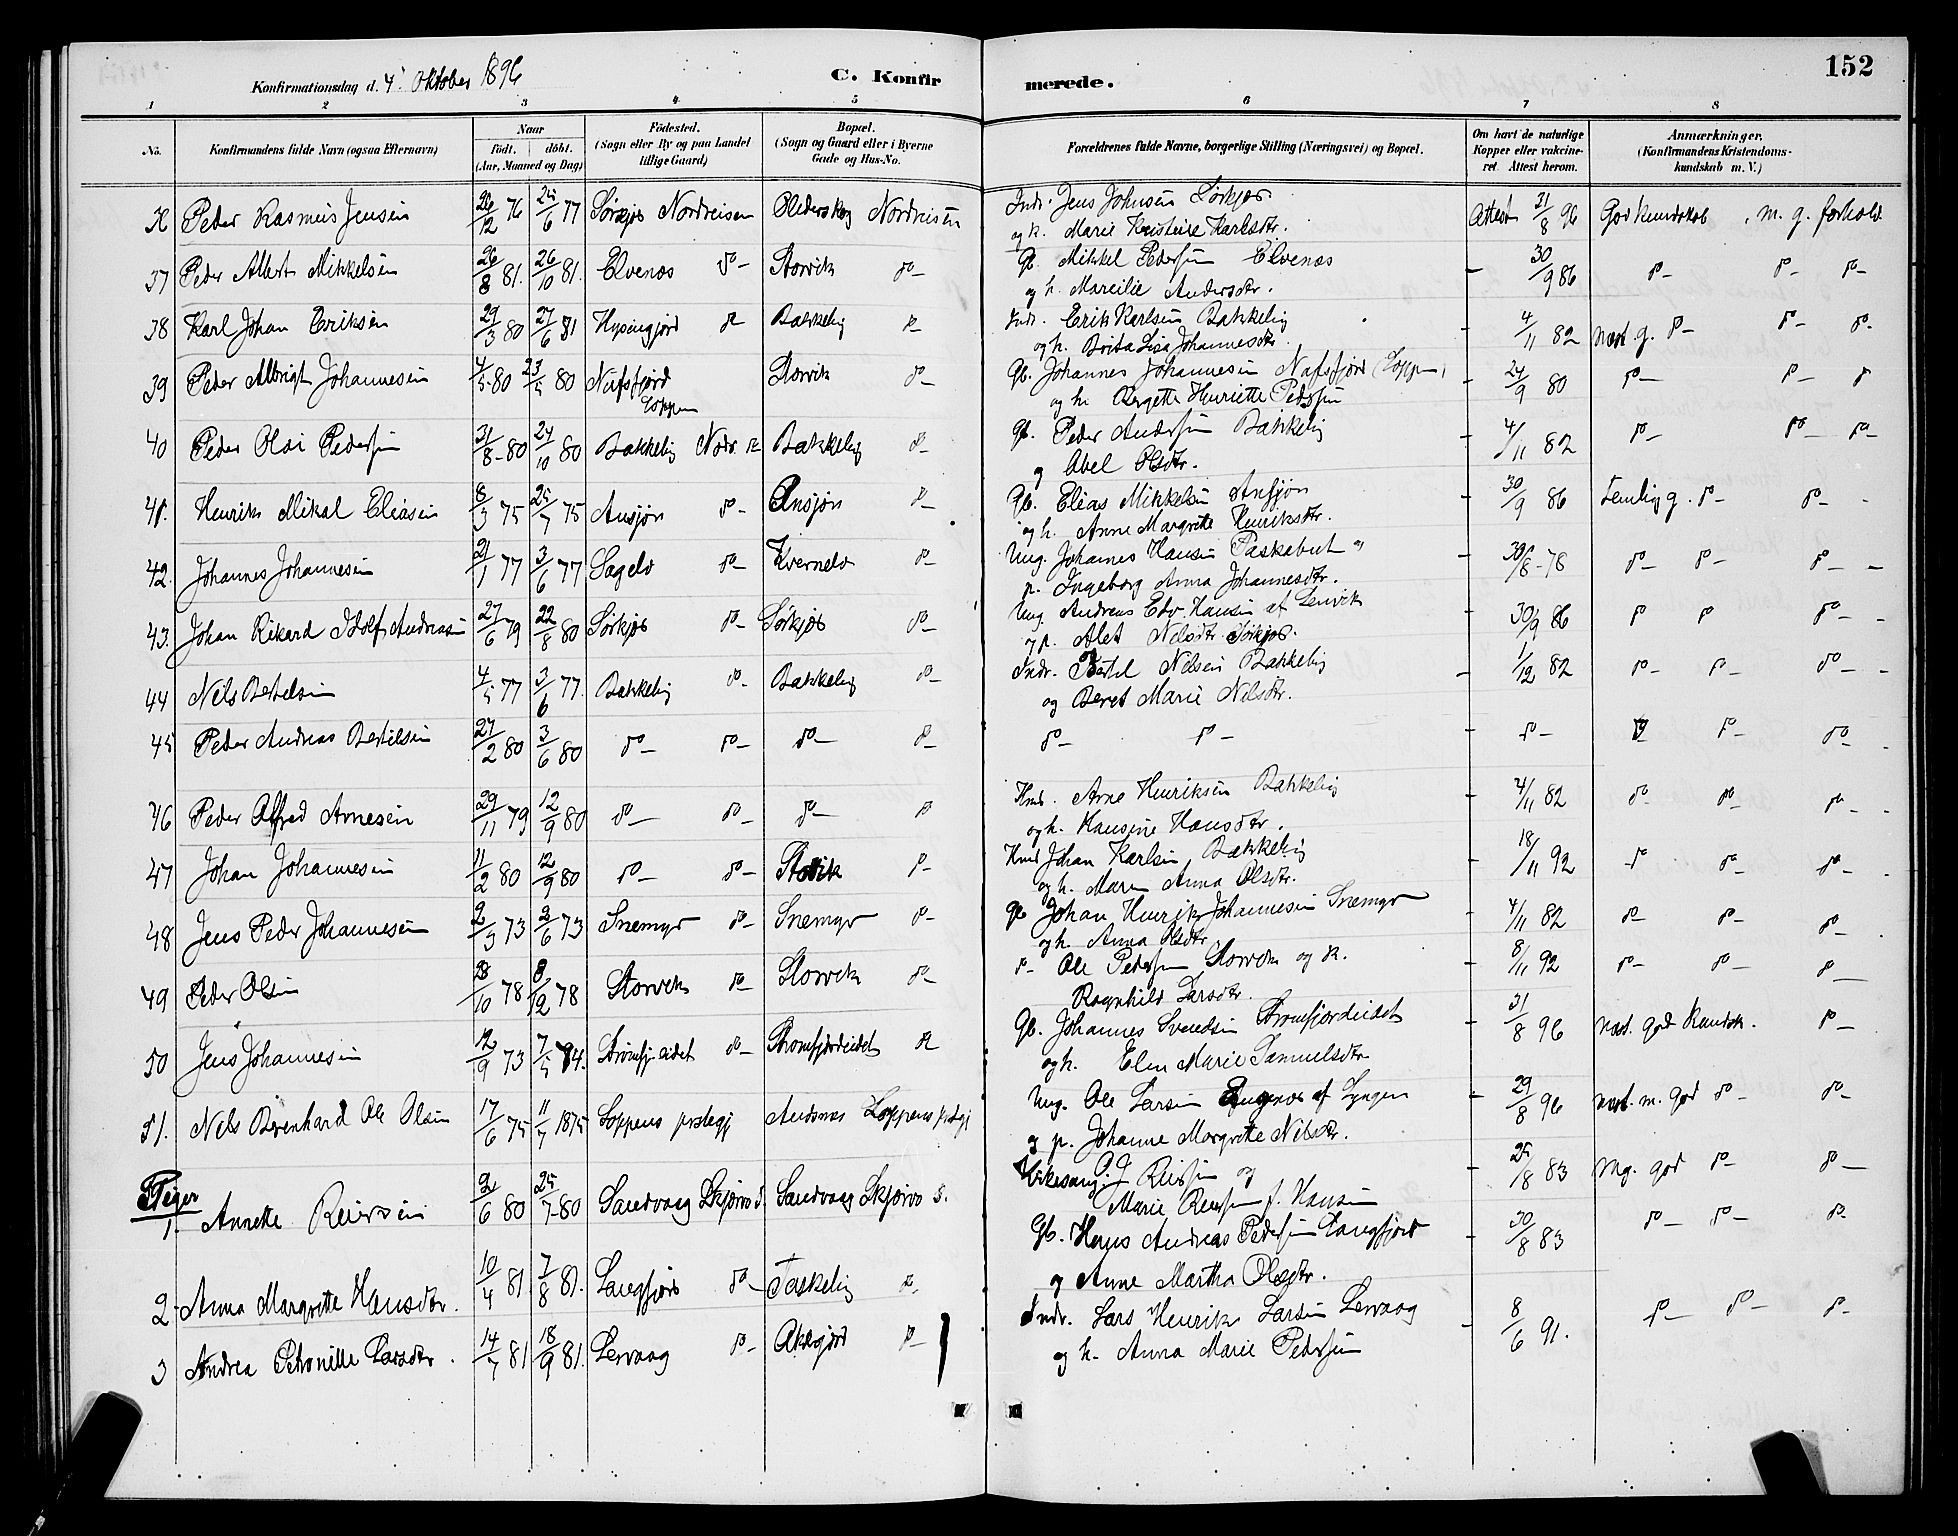 152
Konfirmationsdag d. 4' Oktober 1896 C. Konfirmerede.
1 2 3 4 5 6 7 8
No. Konfirmandens fulde Navn (ogsaa Efternavn) Naar født. døbt. (Aar, Maaned og Dag) Fødested. (Sogn eller By og paa Landet tillige Gaard) Bopæl. (Sogn og Gaard eller i Byerne Gade og Hus-No. Forældrenes fulde Navne, borgerlige Stilling (Næringsvei) og Bopæl. Om havt de naturlige Kopper eller vakcineret. Attest herom. Anmærkninger. (Konfirmandens Kristendomskundskab m. V.)
Peder Rasmus Jensen 26/12 76 25/6 77 Sörkjos Nordreisen Olderskog Nordreisen Indr. Jens Johnsen Sörkjos. Attest 31/8 96 God Kundskab, m. g. forhold
og k. Marie Kristine Karlsdtr.
37 Peder Albert Mikkelsen 26/8 81. 26/10 81. Elvenæs do- Storvik do- Gb. Mikkel Pedersen Elvenæs - 30/9 86 do- do- do-
og h. Mareilie Andersdtr.
38 Karl Johan Eriksen 29/3 80 27/6 81 Bakkeliy Indr. Erik Karlsen Bakkeliy - 4/11 82 næst. g. do- do- do-
og h. Brita Lisa Johannesdtr.
39 Peder Albrigt Johannesen 4/5 80 23/5 80 Nufsfjord Loppen Storvik do- Gb. Johannes Johannesen Nufsfjord (Loppen) - 24/9 80 do- do- do
og h. Bergette Henriette Pedersen
40 Peder Olai Pedersen 31/8-80 24/10 80 Bakkeliy Nodr. R Bakkeliy do- Gb. Peder Andersen Bakkeliy - 4/11 82 do- do- do-
og Abel Olsdtr.
41. Henrik Mikal Eliasen 8/3 75 25/7 75 Ansjøn do- Ansjøn do- Gb. Elias Mikkelsen Ansjøn - 30/9 86 Temlig g. do- do-
og h. Anne Margrette Henriksdtr.
42. Johannes Johannesen 21/1 77 3/6 77 Sagelv do- Kvernelv do- Ung. Johannes Hansen Paskabut og - 30/8-78 do- do- do-
p. Ingeborg Anna Johannesdtr.
43. Johan Rikard Idolf Andreasen 27/6 79 22/8 80 Sörkjos do- Sörkjos do- Ung. Andreas Edv. Hansen af Lenvik - 30/9 86 do do do-
og p. Alet Nelsdtr Sörkjos.
44 Nels Bertelsen 4/5 77 3/6 77. Bakkeliy do- Bakkeliy do- Indr. Bertel Nelsen Bakkeliy - 1/12 82 do- do- do-
og Beret Marie Nelsdtr.
45 Peder Andreas Bertelsen 27/2 80 3/6 80 do- do- do- do- do- do- do- do- do-
46 Peder Alfred Arnesen 29/11 79 12/9 80 do- do- do- do Arne Henriksen Bakkeliy 4/11 82 do- do- do-
og h. Hansine Hansdtr.
47 Johan Johannesen 11/2 80 12/9 80 do- do- Storvik do- Johan Karlsen Bakkeliy 18/11 92 do do- do-
og h. Maren Anna Olsdtr.
48 Jens Peder Johannesen 2/3 73 2/6 73 Snemyr do- Snemyr do- Gb Johan Henrik Johannesen Snemyr - 4/11 82 do- do- do-
og h. Anna Olsdtr.
49 Peder Olsen 28/10 78 8/12 78 Storvik do- Storvik do- do- Ole Pedersen Storvik og k. - 8/11 92 do- do- do-
Ragnhild Larsdtr.
50 Jens Johannesen 12/9 73 7/5 74. Strømfj.eidet do- Strømfjordeidet do Gb. Johannes Svendsen Strømfjordeidet - 31/8 96 næst. god Kundsk. do-
og h. Elen Marie Samuelsdtr
51. Nels Berenhard Ole Olsen 17/6 75 11/7 1875 Loppens prstegj Andsnæs Loppens prstgj Ung. Ole Larsen af Lyngen - 29/8 96 næst. m. god do- do-
og p. Johanne Margrette Nelsdtr.
Piger
1. Annette Reiersen 2/6 80 25/7-80 Sandvaag Skjærvø S. Sandvaag Skjærvø S. Kirkesang. P.J Reiersen og - 25/8 83 mg. god do- do-
Marie Reiersen f. Hansen
2 Anna Margrette Hansdtr. 10/4 81 7/8 81. Langfjord do- Taskeliy do- Gb. Hans Andreas Pedersen Langfjord - 30/8 83 do- do- do-
og Anne Martha Olsdtr.
3 Andrea Petronille Larsdtr. 14/7 81 18/9 81. Lervaag do- do- Indr. Lars Henrik Larsen Lervaag - 8/6 91. do- do- do-
og h. Anna Marie Pedersen